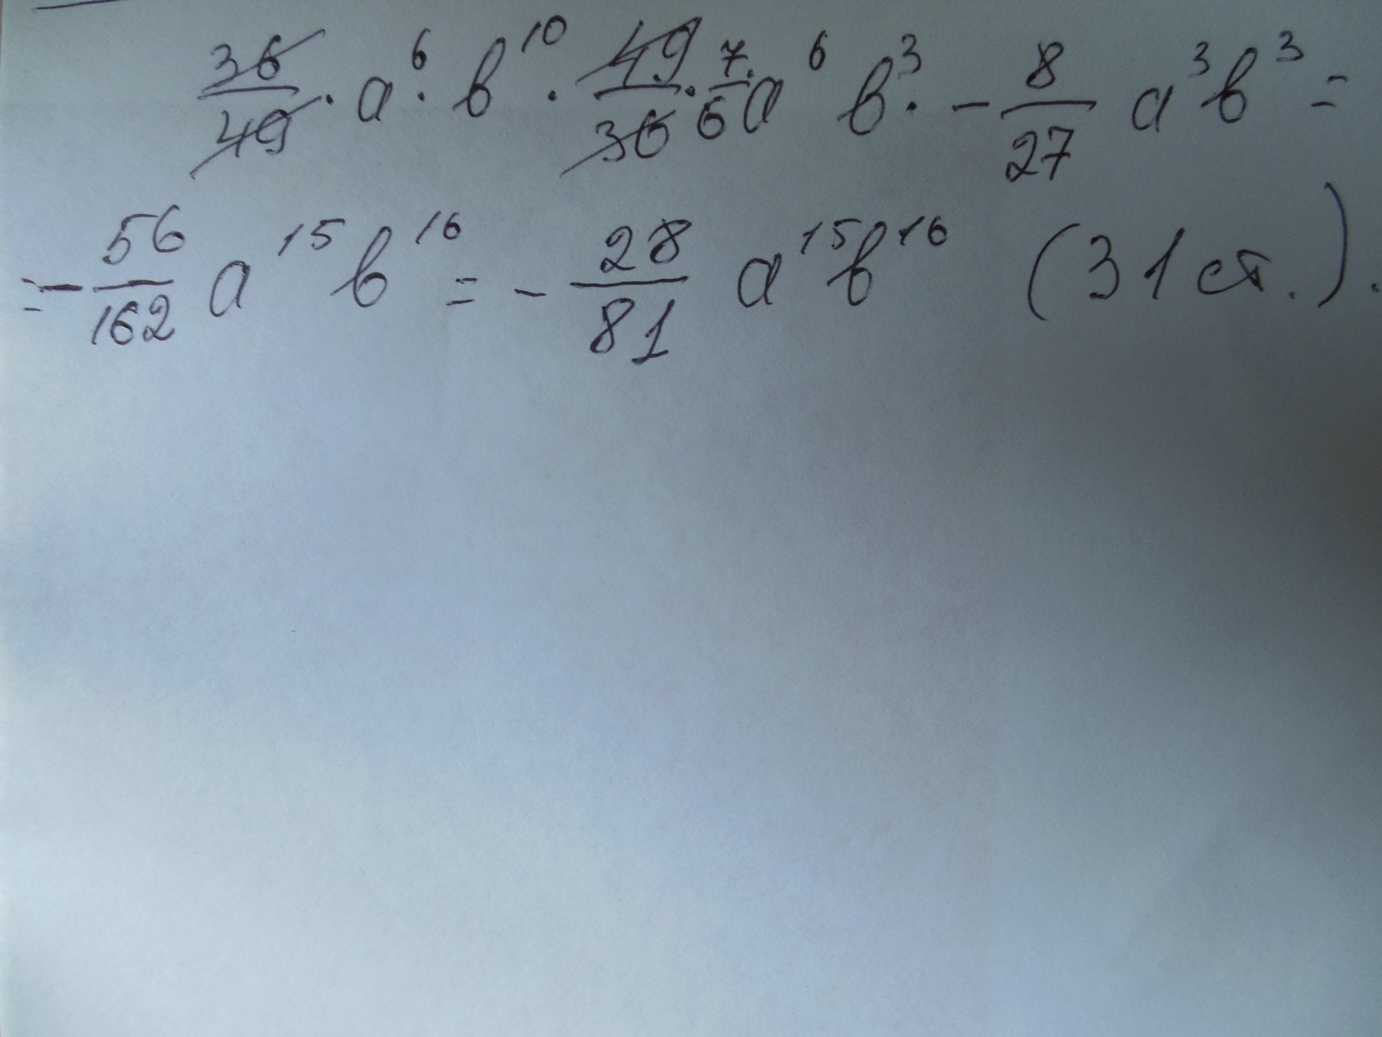 36/49 · a⁶ · b¹⁰ · 49/36 · 7/6 a⁶ b³ · - 8/27 a³b³ =
= - 56/162 a¹⁵ b¹⁶ = - 28/81 a¹⁵b¹⁶ (31 ст.).